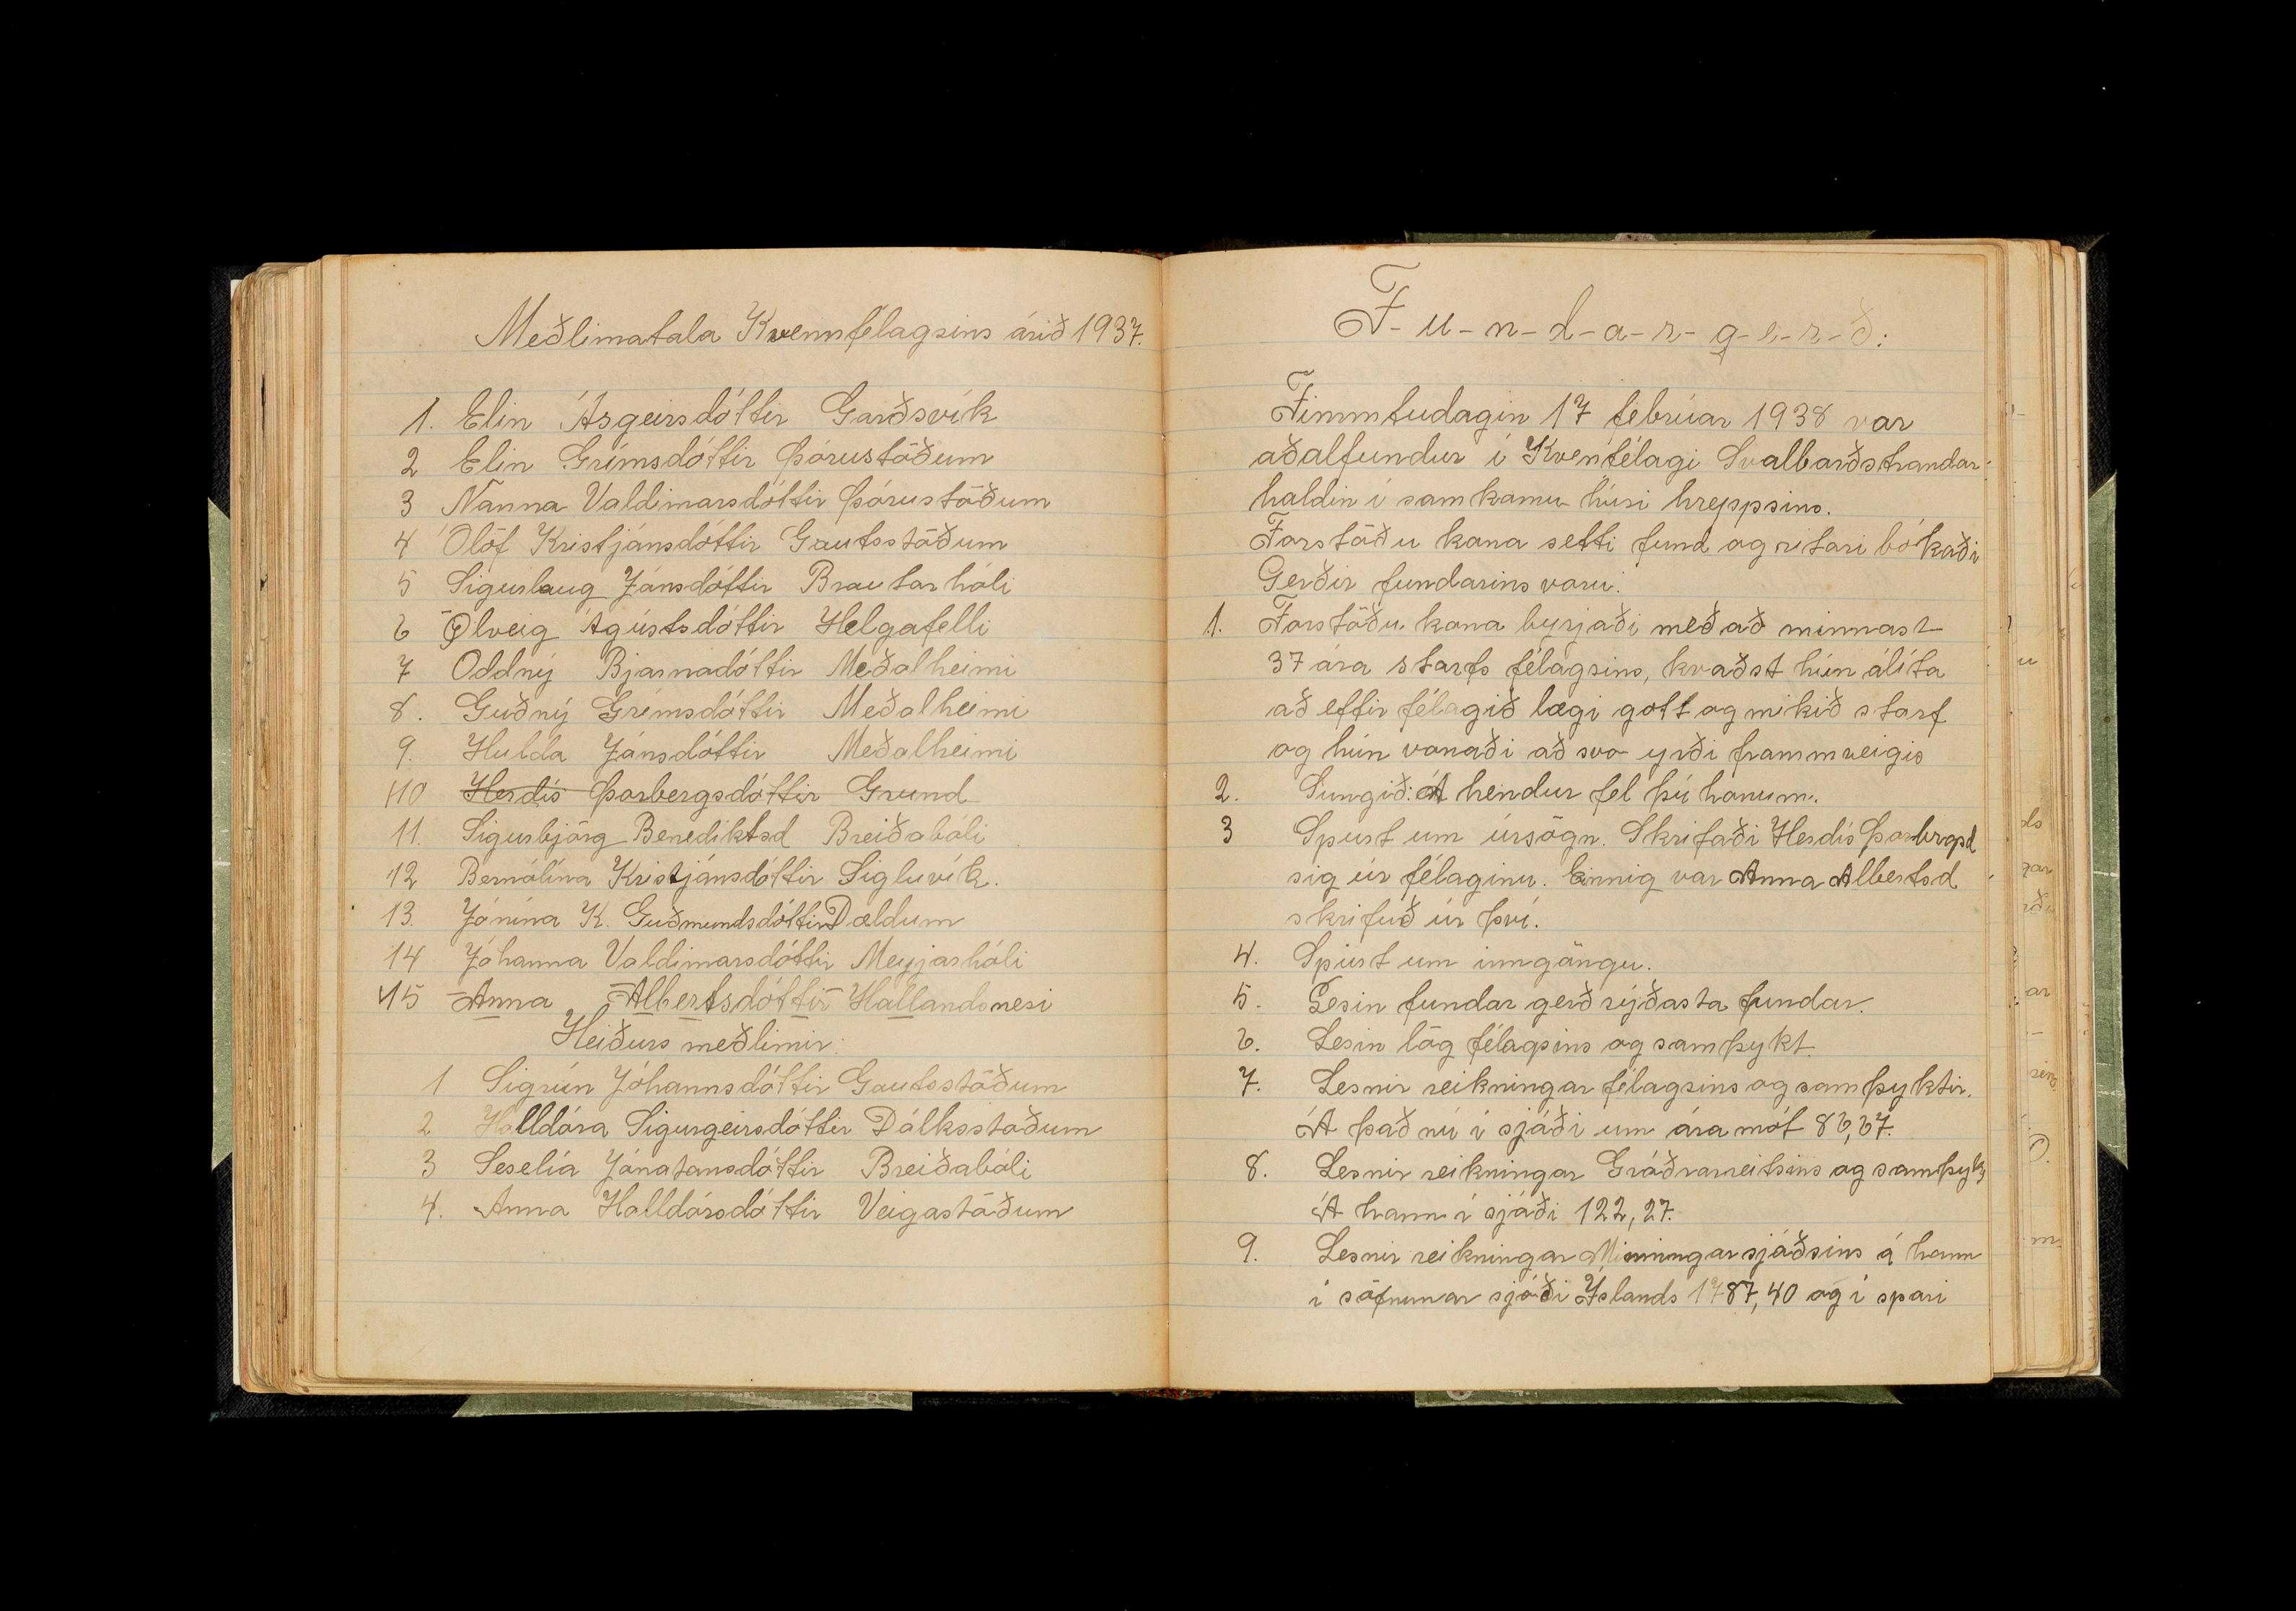 Meðlimatala Kvennfélagsins árið 1937.
1. Elin Ásgeirsdóttir Garðsvík
2 Elin Grímsdóttir Þórustöðum
3 Nanna Valdimarsdóttir Þórustöðum
4 Ólöf Kristjánsdóttir Gautsstöðum
5 Sigurlaug Jónsdóttir Brautarhóli
6 Ölveig Ágústsdóttir Helgafelli
7 Oddný Bjarnadóttir Meðalheimi
8. Guðný Grímsdóttir Meðalheimi
9. Hulda Jónsdóttir Meðalheimi
10 Herdís Þorbergsdóttir Grund
11. Sigurbjörg Benediktsd Breiðabóli
12 Bernólína Kristjánsdóttir Sigluvík.
13. Jónína K. Guðmundsdóttir Dældum
14 Jóhanna Valdimarsdóttir Meyjarhóli
15 Anna Albertsdóttir Hallandsnesi
Heiðurs meðlimir:
1 Sigrún Jóhannsdóttir Gautsstöðum
2 Halldóra Sigurgeirsdóttir Dálksstöðum
3 Seselía Jónatansdóttir Breiðabóli
4. Anna Halldórsdóttir Veigastöðum
F-u-n-d-a-r-g-e-r-ð:
Fimmtudagin 17 febrúar 1938 var
aðalfundur í Kvenfélagi Svalbarðstrandar-
haldin í samkomu húsi hreppsins.
Forstöðu kona setti fund og ritari bókaði
Gerðir fundarins voru:
1. Forstöðu kona byrjaði með að minnast
37 ára starfs félagsins, kvaðst hún álíta
að eftir félagið lægi gott og mikið starf
og hún vonaði að svo yrði frammveigis
2. Sungið: Á hendur fel þú honum.
3 Spurt um úrsögn. Skrifaði Herdís Þorbrgsd
sig úr félaginu. Einnig var Anna Albertsd
skrifuð úr því.
4. Spurt um inngöngu.
5. Lesin fundar gerð sýðasta fundar.
6. Lesin lög félagsins og samþykt.
7. Lesnir reikningar félagsins og samþyktir.
Á það nú í sjóði um áramót 86,67.
8. Lesnir reikningar Gróðrarreitsins og samþykt
Á hann í sjóði 122,27.
9. Lesnir reikningar Minningarsjóðsins á hann
í söfnunar sjóði Íslands 1787,40 og í spari